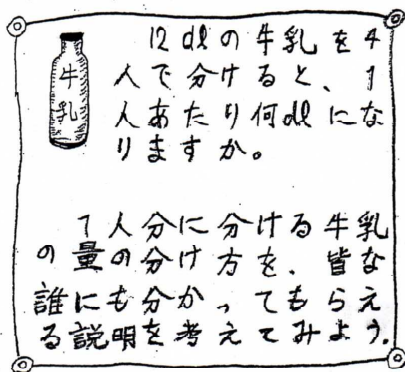 牛乳
12dlの牛乳を4
人で分けると、1
人あたり何dlにな
りますか。
1人分に分ける牛乳
の量の分け方を、皆な
誰にも分かってもらえ
る説明を考えてみよう。